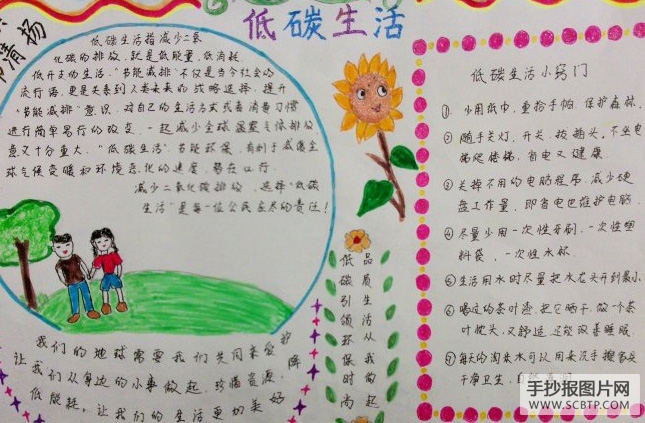 清扬
低碳生活
低碳生活指减少二氧
化碳的排放,就是低能量、低消耗、
低开支的生活,"节能减排"不仅是当今社会的
流行语,更是关系到人类未来的战略选择。提升
"节能减排"意识,对自己的生活方式或者消费习惯
进行简单易行的改变,一起减少全球温室气体排放
意义十分重大。"低碳生活"节能环保,有利于减缓全
球气候变暖和环境恶化的速度,势在必行。
减少二氧化碳排放,选择"低碳
生活"是每一位公民应尽的责任!
我们的地球需要我们共同来爱护
让我们从身边的小事做起,珍惜资源,降
低能耗,让我们的生活更加美好
低碳引领环保时尚
品质生活从我做起
低碳生活小窍门
①少用纸巾,重拾手帕,保护森林
②随手关灯、开关、拔插头,不坐电
梯爬楼梯,省电又健康
③关掉不用的电脑程序,减少硬
盘工作量,即省电也维护电脑.
④尽量少用一次性牙刷,一次性塑
料袋,一次性水杯
⑤生活用水时尽量把水龙头开到最小
⑥喝过的茶叶渣,把它晒干,做一个茶
叶枕头,又舒适,还能改善睡眠.
⑦每天的淘米水可以用来洗手擦家具
干净卫生,自然
手抄报图片网
WWW.SCBTP.COM